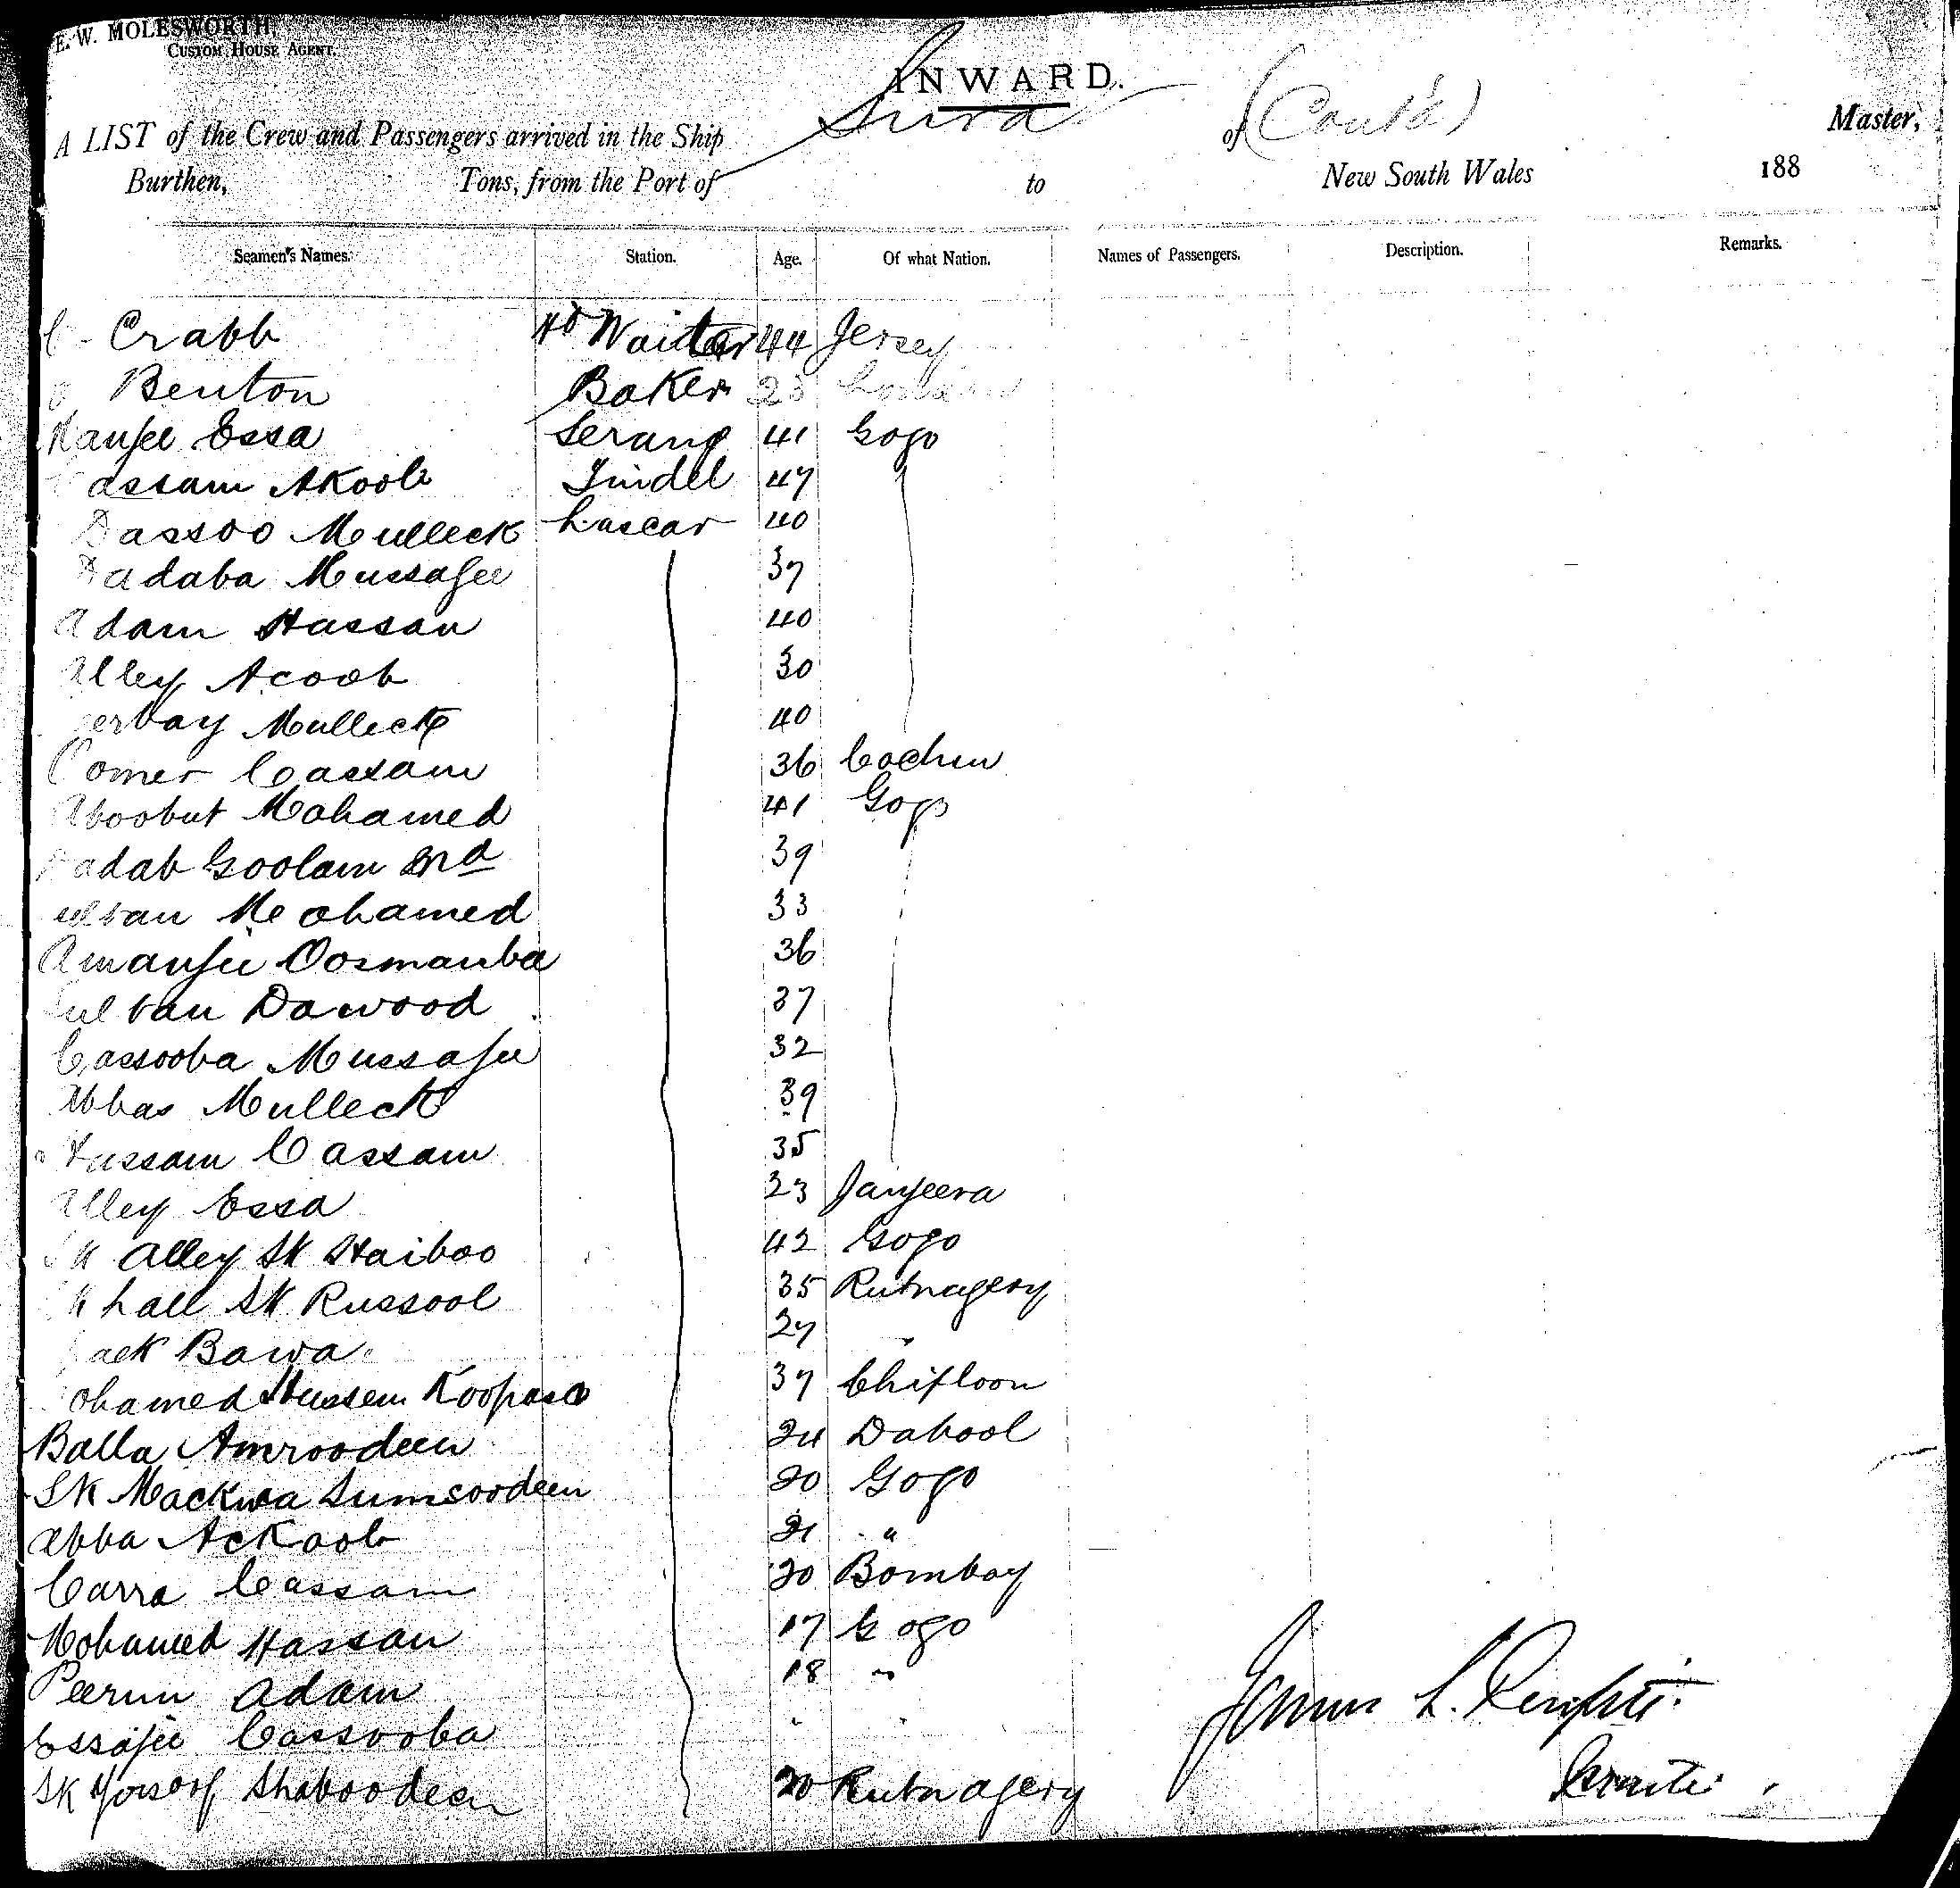 E. W. MOLESWORTH,
CUSTOM HOUSE AGENT.
INWARD.
A LIST of the Crew and Passengers arrived in the Ship Surat of (Cont'd) Master,
Burthen, Tons, from the Port of to New South Wales 188
Seamen's Names. Station. Age. Of what Nation. Names of Passengers. Description. Remarks.
Crabb Waiter 44 Jersey
Benton Baker 23 London
Kanjee Essa Serang 41 Gogo
assam Akoob Tindel 47
Dassoo Mulleck Lascar 40
Dadaba Mussajee 37
Adam Hassan 40
Alley Acoob 30
erbay Mulleck 40
Oomer Cassam 36 Cochin
Aboobut Mohamed 41 Gogo
adab Goolam Md 39
ultan Mohamed 33
Amanjee Oosmanba 36
Sultan Dawood 37
Cassooba Mussajee 32
Abbas Mulleck 39
Hussam Cassam 35
Alley Essa 23 Janjeera
Sk Alley Sk Haiboo 42 Gogo
Lall Sk Russool 35 Rutnagery
Bawa 27 "
ohamed Hussem Koopasa 37 Chiploon
Balla Amroodeen 24 Dabool
Sk Mackwa Sumsoodeen 20 Gogo
Abba Ackoob 21 "
Carra Cassam 20 Bombay
Mohamed Hassan 17 Gogo
Peerun Adam 18 "
Essajee Cassooba " "
Sk Yousoof Shaboodeen 20 Rutnagery
James L.